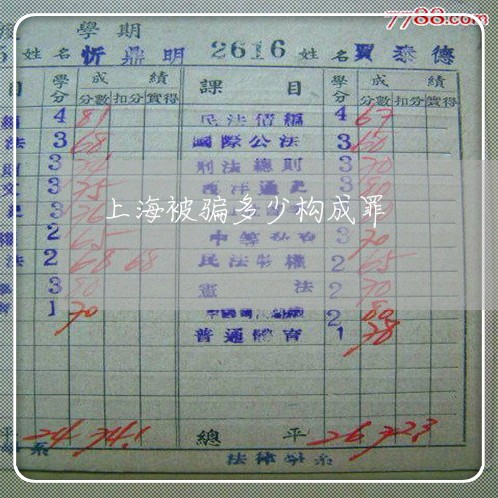 7788.com
學期
5 姓名 忻鼎明 2616 姓名 賈泰德
目 學分 成績 課目 學分 成績
分數 扣分 實得 分數 扣分 實得
4 81 民法債編 4 67
法 3 68 國際公法 3 60
3 刑法總則 3 70
3 75 西洋通史 3 80
3 76 3
2 65 3 70
法 2 68 68 民法物權 2 65
3 80 憲法 2 70
育 1 70 2 80
普通體育 1 78
上海被骗多少构成罪
平 24 74.1 總平 26 72.3
系 法律學系